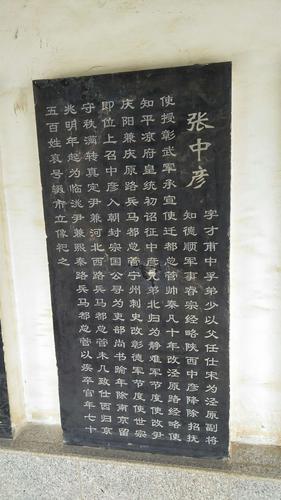 张中彦
字才甫中孚弟少以父任仕宋为泾原副将
知德顺军事睿宗经略陕西中彦降除招抚
使授彰武军承宣使迁都总管帅秦凡十年改泾原路经略使
知平凉府皇统初诏征中彦兄弟北归为静难军节度使改尹
庆阳兼庆原路兵马都总管宁州刺史改彰德军节度使世宗
即位上召中彦入朝封宗国公寻为吏部尚书逾年除南京留
守秩满转真定尹兼河北西路兵马都总管未几致仕西归京
兆明年起为临洮尹兼熙秦路兵马都总管以疾卒官年七十
五百姓哀号辍市立像祀之